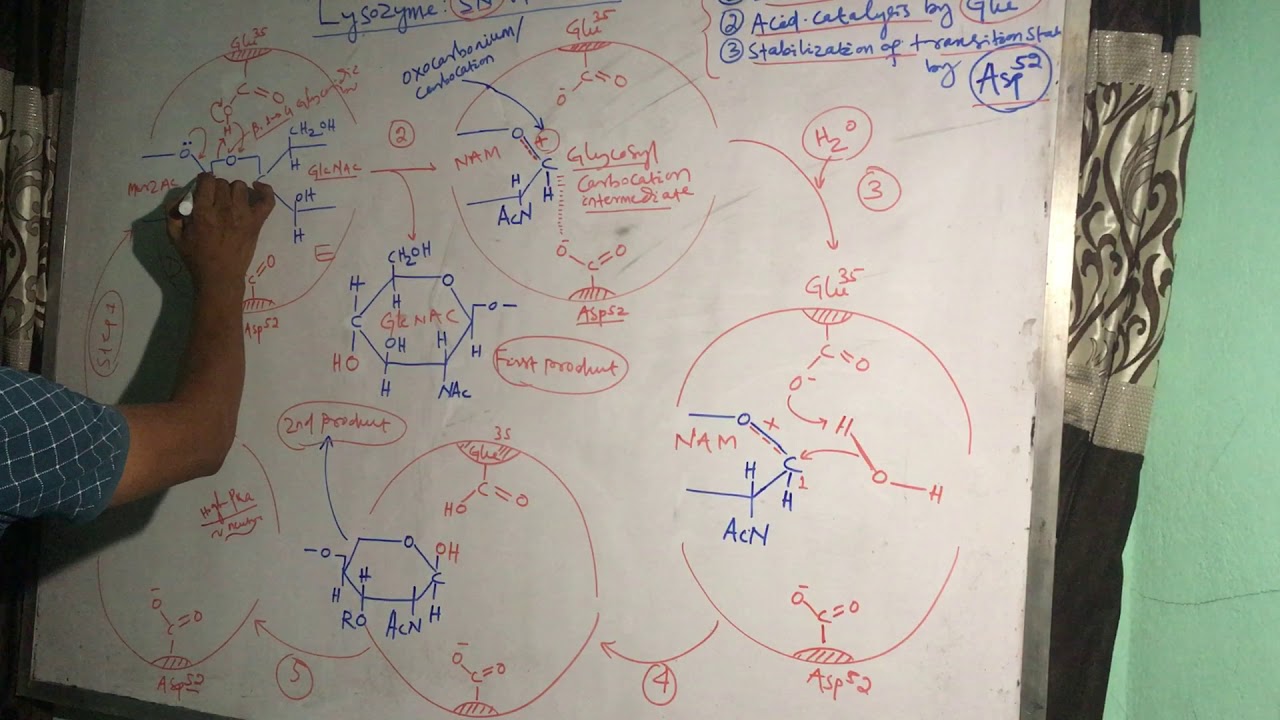 Lysozyme: SN
② Acid catalysis by Glu
③ Stabilization of transition stat
by Asp52
Glu35
C
O
H
O
O
CH2OH
H
GlcNAC
Mur2Ac
OH
H
E
C
O
Asp52
Step 1
②
oxocarbonium/
carbocation
Glu35
C
O
O-
O
+
NAM
C
H
H
AcN
Glycosyl
carbocation
intermediate
O-
C
O
Asp52
H2O
③
CH2OH
H
O
H
C
GlcNAC
O
OH
H
H
HO
H
NAc
First product
Glu35
C
O
O-
O
+
H
NAM
C
1
H
H
O
H
AcN
O-
C
O
Asp52
④
2nd product
35
Glu
C
O
HO
O
O
OH
C
H
H
H
RO
AcN
O-
C
O
⑤
High pka
O-
C
O
Asp52